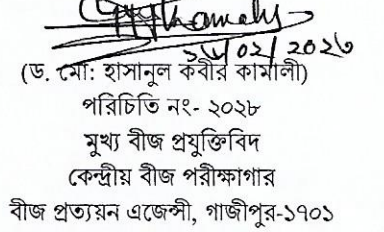 (ড. মো: হাসানুল কবীর কামালী)
পরিচিতি নং- ২০২৮
মুখ্য বীজ প্রযুক্তিবিদ
কেন্দ্রীয় বীজ পরীক্ষাগার
বীজ প্রত্যয়ন এজেন্সী, গাজীপুর-১৭০১